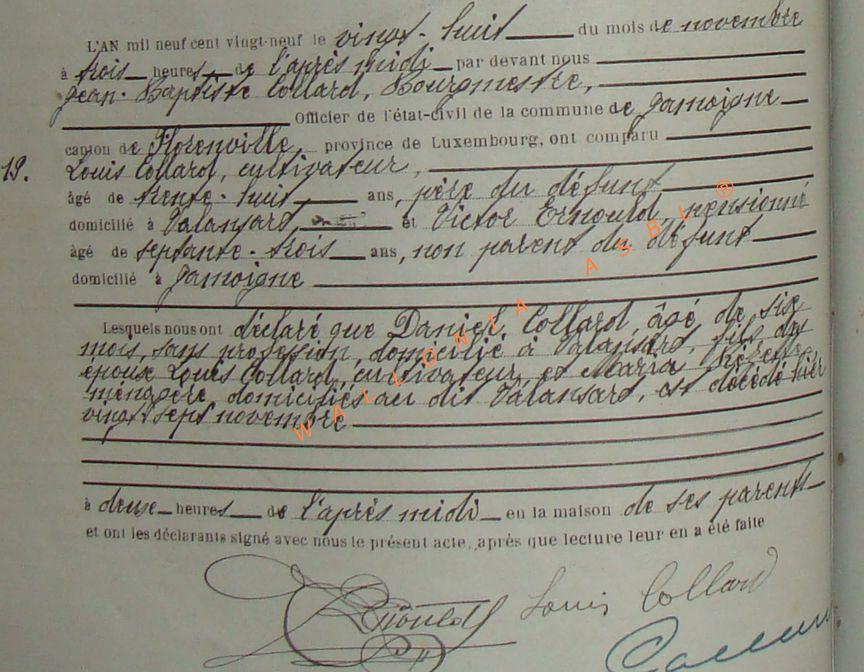 L'AN mil neuf cent vingt-neuf le vingt-huit du mois de novembre
à trois heures de l'après midi par devant nous
Jean-Baptiste Collard, Bourgmestre,
Officier de l'état-civil de la commune de Jamoigne
canton de Florenville, province de Luxembourg, ont comparu
19. Louis Collard, cultivateur,
âgé de trente-huit ans, père du défunt
domicilié à Valansart, et Victor Ernould, pensionné
âgé de septante-trois ans, non parent du défunt
domicilié à Jamoigne
Lesquels nous ont déclaré que Daniel Collard, âgé de six
mois, sans profession, domicilié à Valansart, fils des
époux Louis Collard, cultivateur, et Maria
ménagère, domiciliés au dit Valansart, est décédé hier
vingt-sept novembre
à deux heures de l'après midi en la maison de ses parents
et ont les déclarants signé avec nous le présent acte, après que lecture leur en a été faite
Ernould Louis Collard
Collard
WALLONIA ASBL ®